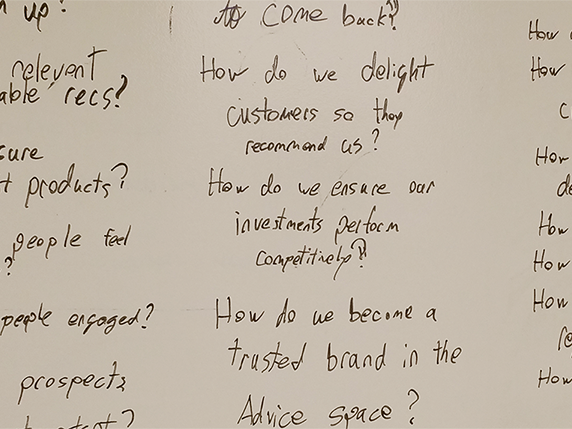 up?
relevent
able recs?
sure
t products?
people feel
?
people engaged?
prospects
to come back?
How do we delight
customers so they
recommend us?
How do we ensure our
investments perform
competitively?
How do we become a
trusted brand in the
Advice space?
How
How
C
How
de
How
How
How
re
How